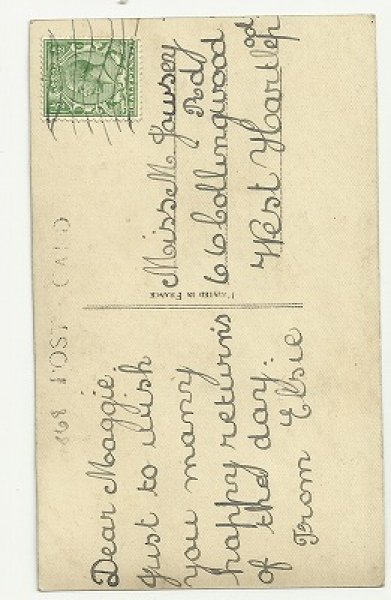 POST CARD
Dear Maggie
Just to wish
you many
happy returns
of the day.
From Elsie
PRINTED IN FRANCE
Miss M
66 Collingwood
Rd
West Hartlepool